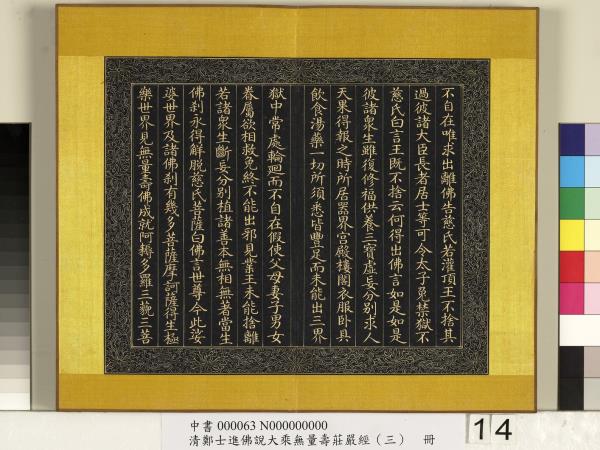 不自在唯求出離佛告慈氏若灌頂王不捨其
過彼諸大臣長者居士等可令太子免禁獄不
慈氏白言王既不捨云何得出佛言如是如是
彼諸衆生雖復修福供養三寶虛妄分別求人
天果得報之時所居器界宮殿樓閣衣服卧具
飲食湯藥一切所須悉皆豐足而未能出三界
獄中常處輪迴而不自在假使父母妻子男女
眷屬欲相救免終不能出邪見業主未能捨離
若諸衆生斷妄分別植諸善本無相無著當生
佛刹永得解脱慈氏菩薩白佛言世尊今此娑
婆世界及諸佛刹有幾多菩薩摩訶薩得生極
樂世界見無量壽佛成就阿耨多羅三藐三菩
中書 000063 N000000000
清鄭士進佛說大乘無量壽莊嚴經（三） 冊
14